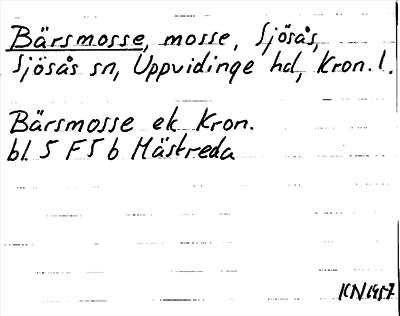 Bärsmosse, mosse, Sjösås,
Sjösås sn, Uppvidinge hd, Kron. l.
Bärsmosse ek Kron.
bl. 5 F 5 b Mästreda
KN 1957